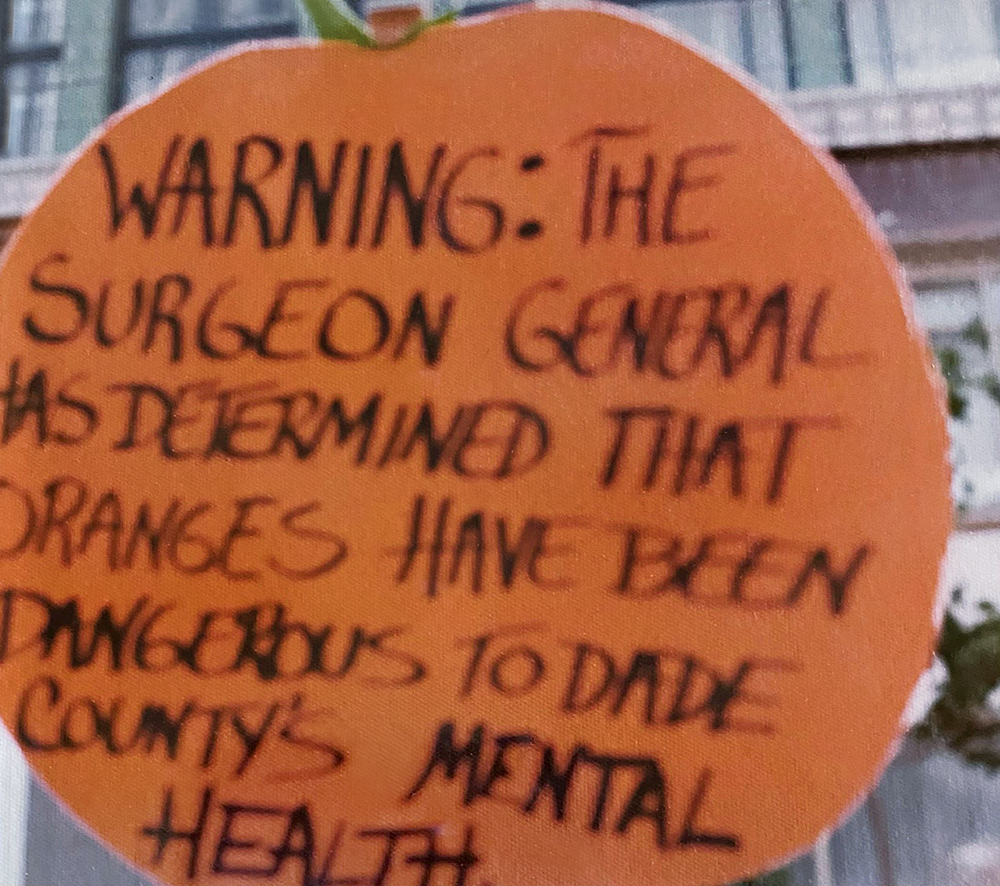 WARNING: THE
SURGEON GENERAL
HAS DETERMINED THAT
ORANGES HAVE BEEN
DANGEROUS TO DADE
COUNTY'S MENTAL
HEALTH.